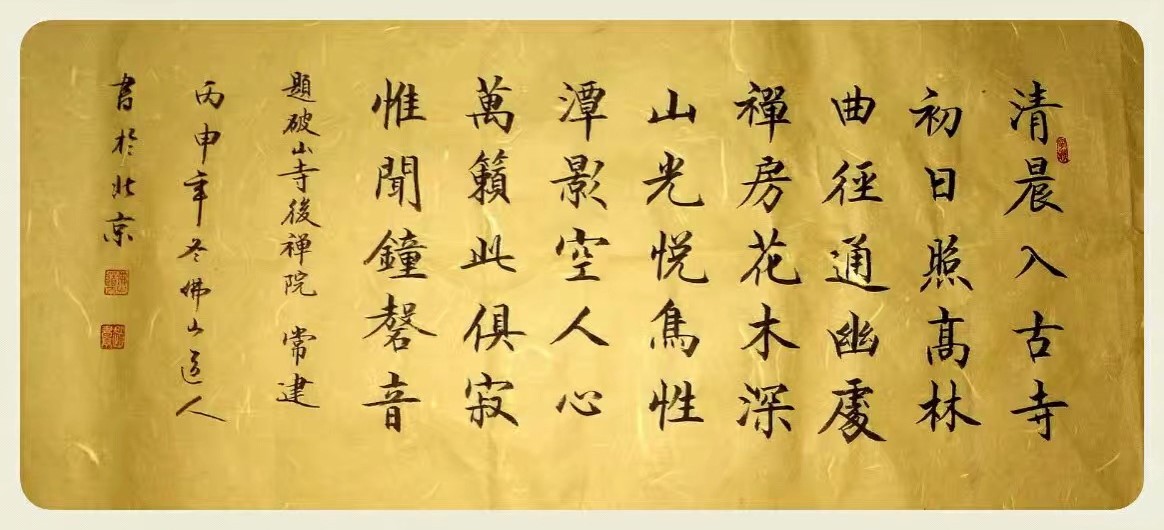 清晨入古寺
初日照高林
曲徑通幽處
禪房花木深
山光悦鳥性
潭影空人心
萬籟此俱寂
惟聞鐘磬音
題破山寺後禅院 常建
丙申年冬佛山道人
書於北京